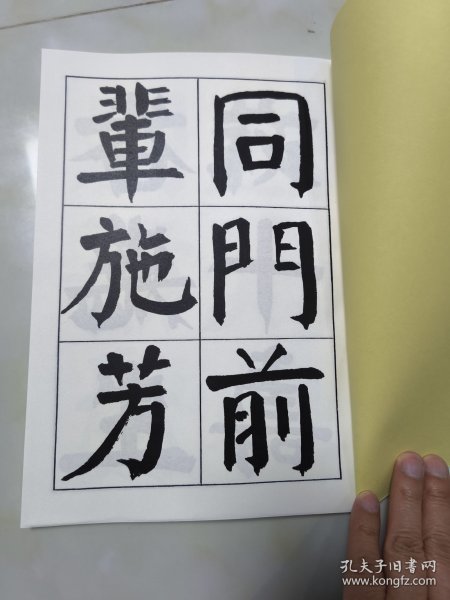 同門前
輩施芳
孔夫子旧书网
www.kongfz.com